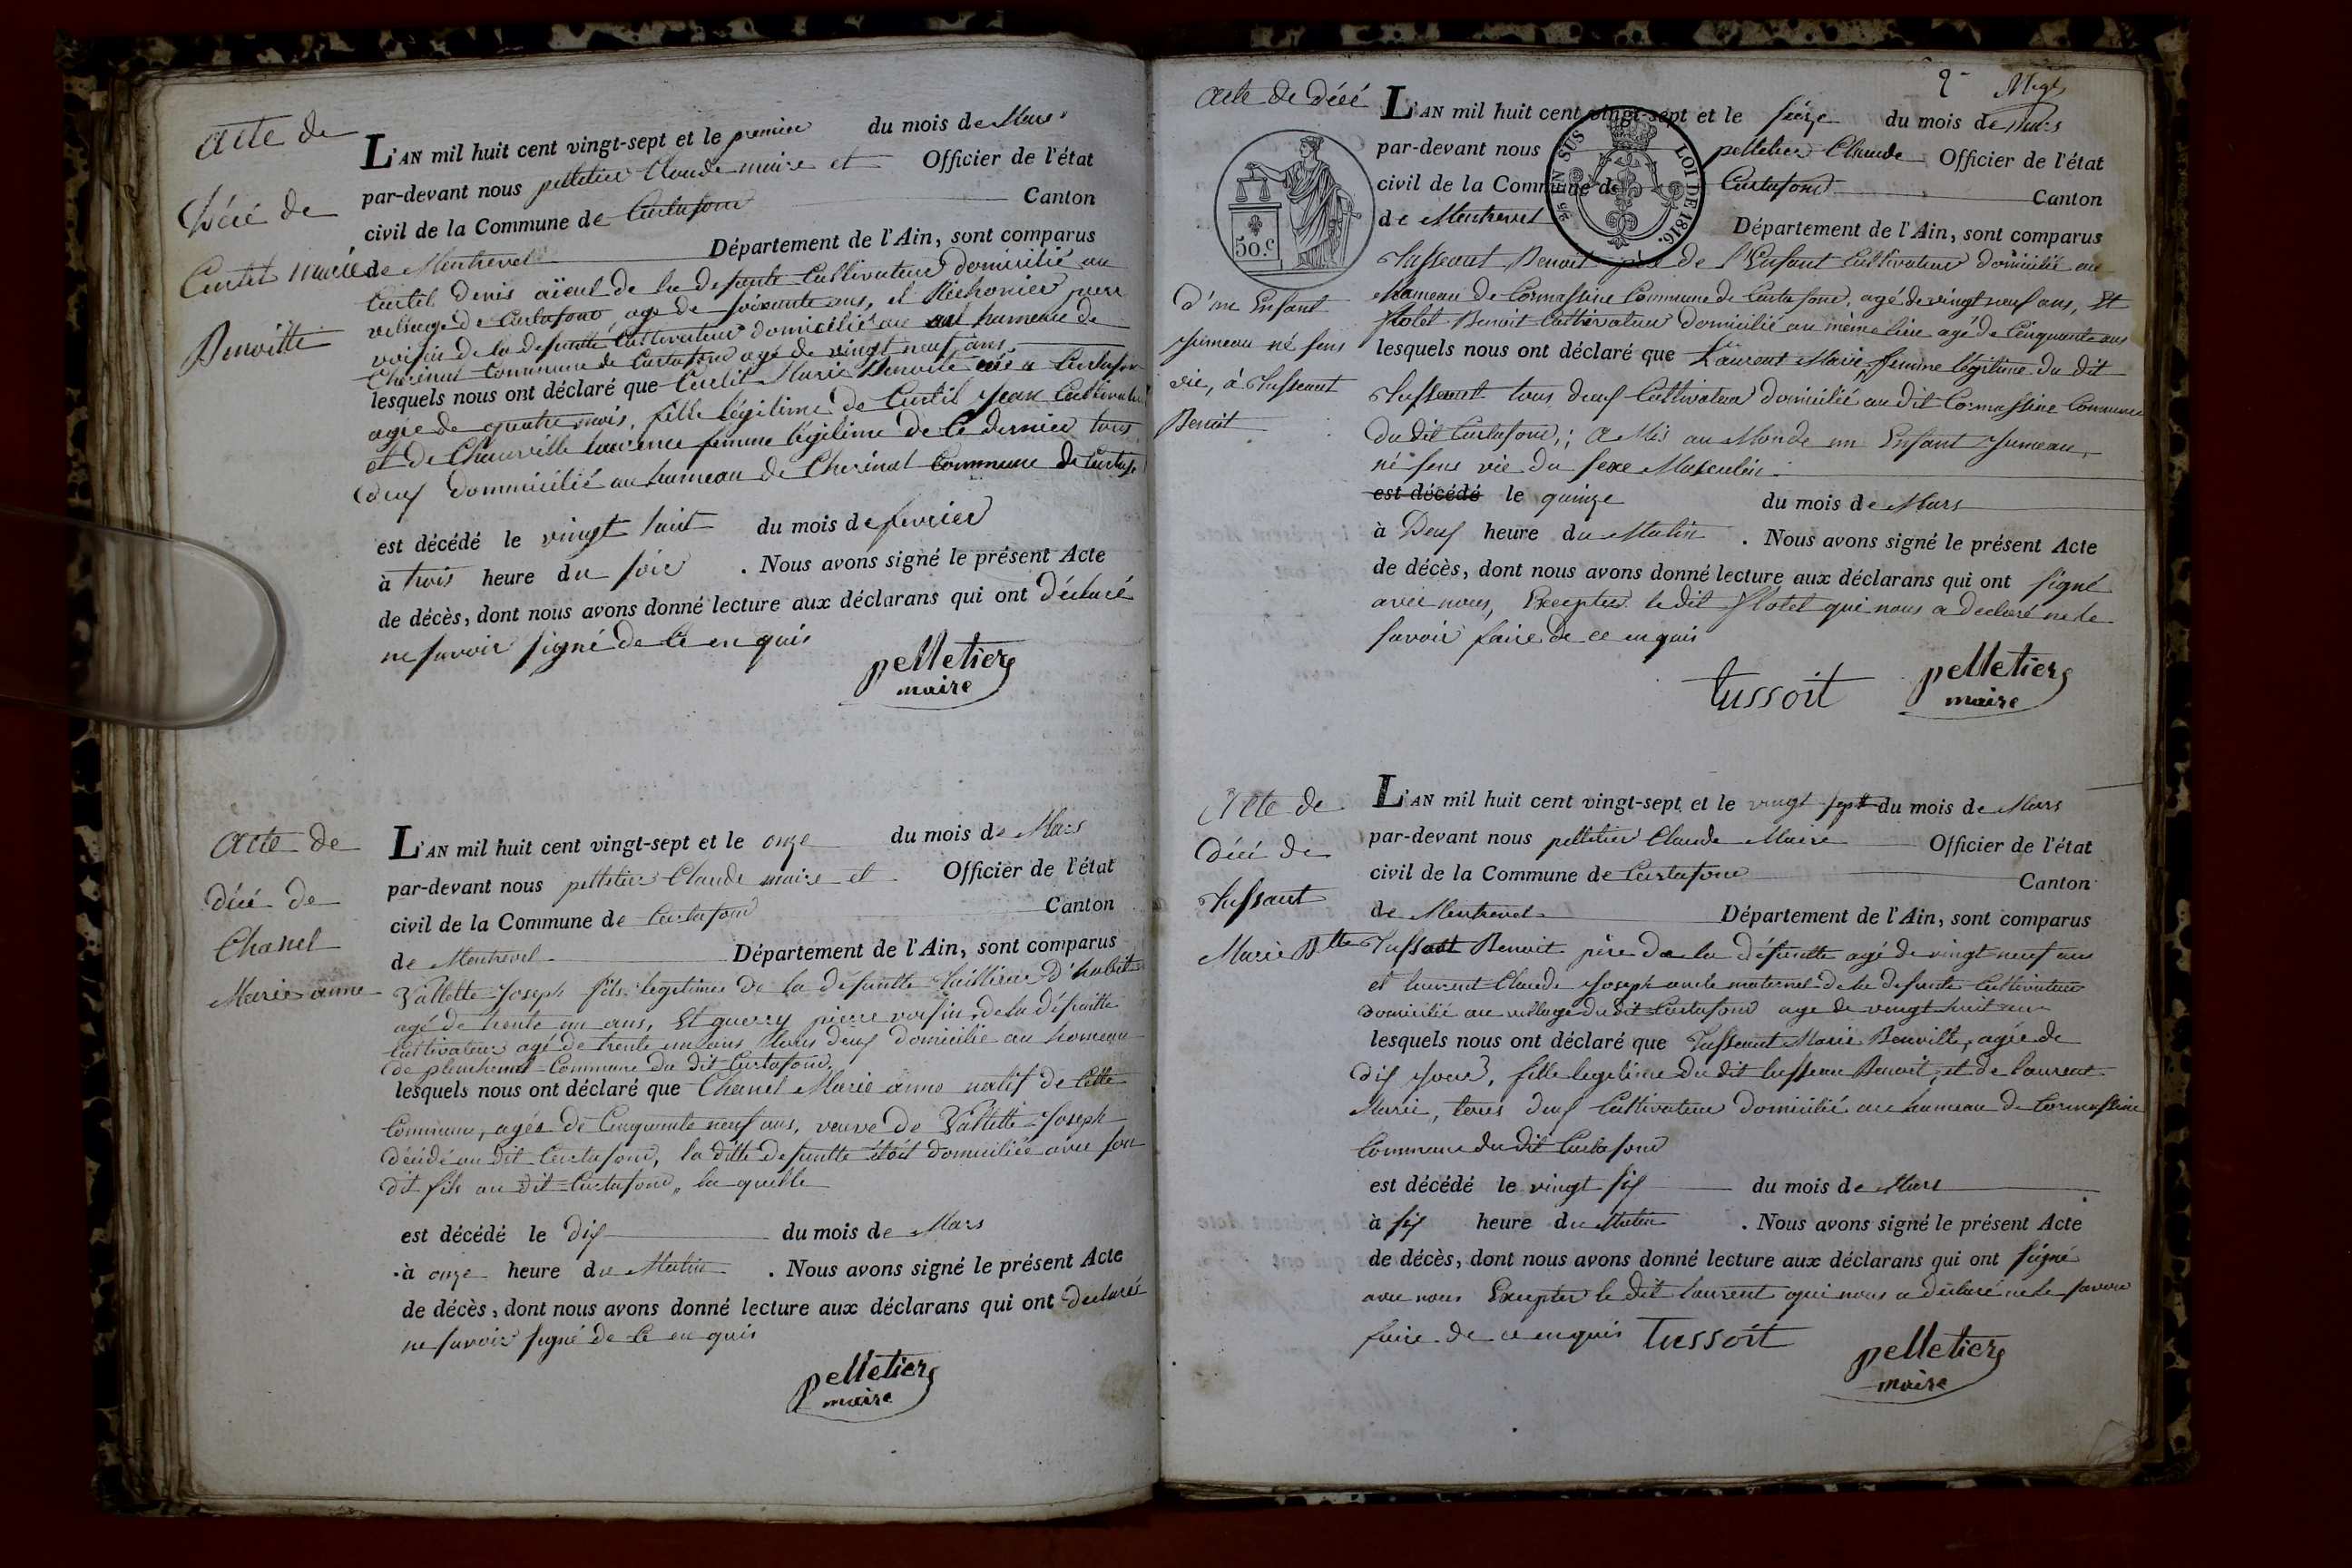 acte de
décé de
Curtet marie
Benoitte
L'AN mil huit cent vingt-sept et le premier du mois de Mars
par-devant nous pelletier Claude maire et Officier de l'état
civil de la Commune de Curtafond Canton
de Montrevel Département de l'Ain, sont comparus
Curtet Denis aïeul de la defunte Cultivateur domicilié au
village de Curtafond agé de soixante ans, et pierre
voisin de la defunte Cultivateur domicilié au hameau de
Cherinal Commune de Curtafond agé de vingt neuf ans.
lesquels nous ont déclaré que Curtet Marie Benoitte née a Curtafond
agée de quatre mois, fille légitime de Curtet Jean Cultivateur
et de Chanville laurence femme légitime de Ce dernier tous
deux dommicilié au hameau de Cherinal Commune de Curtaf.
est décédé le vingt huit du mois de fevrier
à trois heure du soir . Nous avons signé le présent Acte
de décès, dont nous avons donné lecture aux déclarans qui ont déclaré
ne savoir signé de Ce en quis
pelletier
maire
acte de
décé de
Chanel
Marie anne
L'AN mil huit cent vingt-sept et le onze du mois de Mars
par-devant nous pelletier Claude maire et Officier de l'état
civil de la Commune de Curtafond Canton
de Montrevel Département de l'Ain, sont comparus
Vallette Joseph fils legitime de la defuntte tailleur d'habit
agé de trente un ans, Et guerry pierre voisin de la défuntte
Cultivateur agé de trente un ans tous deux domicilié au hameau
de Commune du dit Curtafond.
lesquels nous ont déclaré que Chanel Marie anne natif de Cette
Commune, agée de Cinquante neuf ans, veuve de Vallette Joseph
décédé au dit Curtafond, la ditte defuntte étoit domiciliée avec son
dit fils au dit Curtafond, la quelle
est décédé le dix du mois de Mars
à onze heure du Matin . Nous avons signé le présent Acte
de décès, dont nous avons donné lecture aux déclarans qui ont declaré
ne savoir signé de Ce en quis
pelletier
maire
2
acte de décé
d'un Enfant
jumeau né sens
vie, à Tusseaut
Benoit
50.c
25 EN SUS
LOI DE 1816.
L'AN mil huit cent vingt-sept et le seize du mois de Mars
par-devant nous pelletier Claude Officier de l'état
civil de la Commune de Curtafond Canton
de Montrevel Département de l'Ain, sont comparus
Tusseaut Benoit père de l'Enfant Cultivateur domicilié au
hameau de Cormassine Commune de Curtafond, agé de vingt neuf ans, Et
flotet Benoit Cultivateur domicilié au même lieu agé de Cinquante ans
lesquels nous ont déclaré que Laurent Marie femme légitime du dit
Tusseaut tous deux Cultivateur domicilié au dit Cormassine Commune
du dit Curtafond,; a Mis au Monde un Enfant jumeau,
né sens vie du sexe Masculin
est décédé le quinze du mois de Mars
à Deux heure du Matin . Nous avons signé le présent Acte
de décès, dont nous avons donné lecture aux déclarans qui ont signé
avec nous, Excepter le dit flotet qui nous a declaré ne le
savoir faire de ce en quis
tussoit
pelletier
maire
Acte de
décé de
Tussaut
Marie Btte
L'AN mil huit cent vingt-sept et le vingt sept du mois de Mars
par-devant nous pelletier Claude Maire Officier de l'état
civil de la Commune de Curtafond Canton
de Montrevel Département de l'Ain, sont comparus
Tussaut Benoit père de la défuntte agé de vingt neuf ans
et laurent Claude Joseph oncle maternel de la defunte Cultivateur
domicilié au village du dit Curtafond age de vingt huit ans
lesquels nous ont déclaré que Tusseaut Marie Benoitte, agée de
dix jours, fille legitime du dit Benoit, et de laurent
Marie, tous deux Cultivateur domicilié au hameau de Cormassine
Commune du dit Curtafond
est décédé le vingt six du mois de Mars
à six heure du Matin . Nous avons signé le présent Acte
de décès, dont nous avons donné lecture aux déclarans qui ont signé
avec nous Excepter le dit laurent qui nous a déclaré ne le savoir
faire de ce enquis tussoit
pelletier
maire